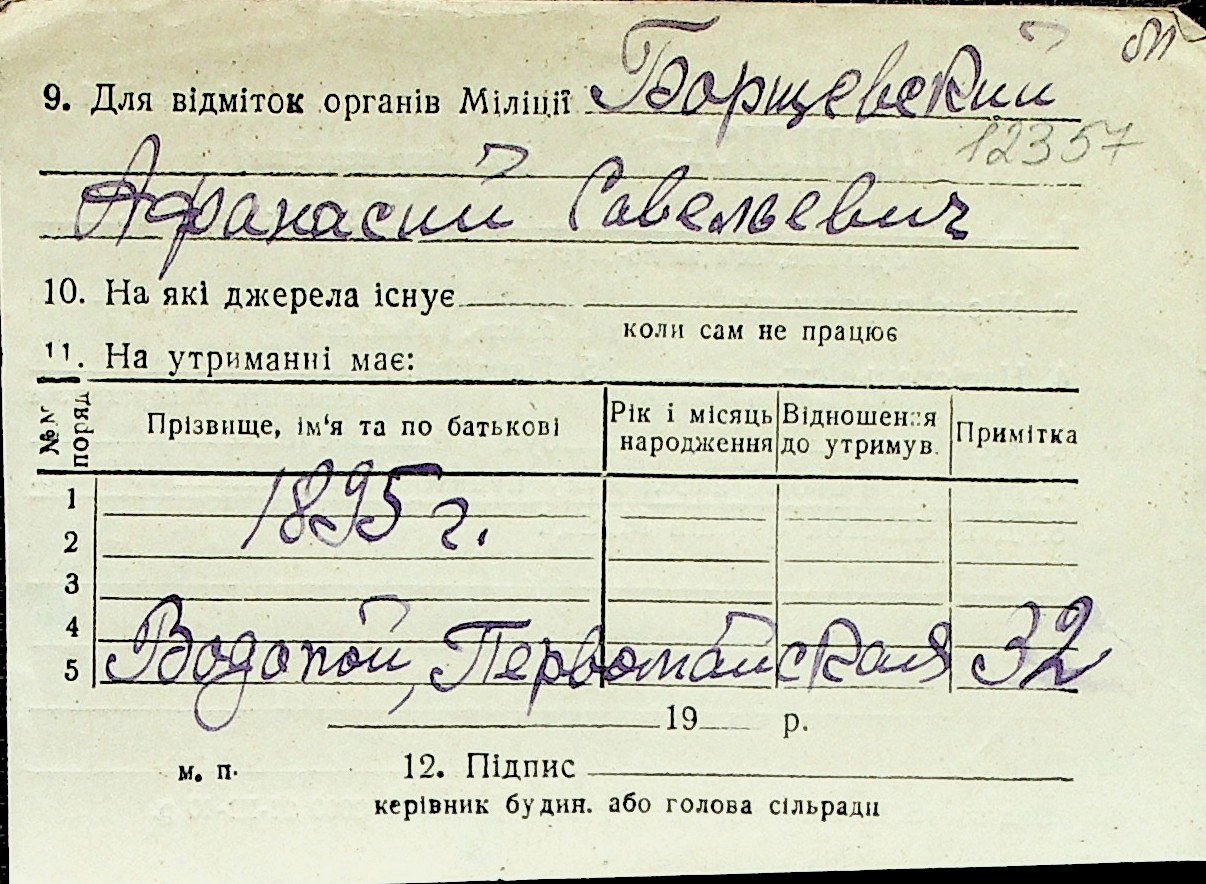 9. Для відміток органів Міліції Борщевский
12357
Афанасий Савельевич
10. На які джерела існує
коли сам не працює
11. На утриманні має:
№№ поряд
Прізвище, ім'я та по батькові
Рік і місяць народження
Відношення до утримув.
Примітка
1
1895 г.
2
3
4
5 Водопой, Первомайская 32
19 р.
м. п. 12. Підпис
керівник будин. або голова сільради